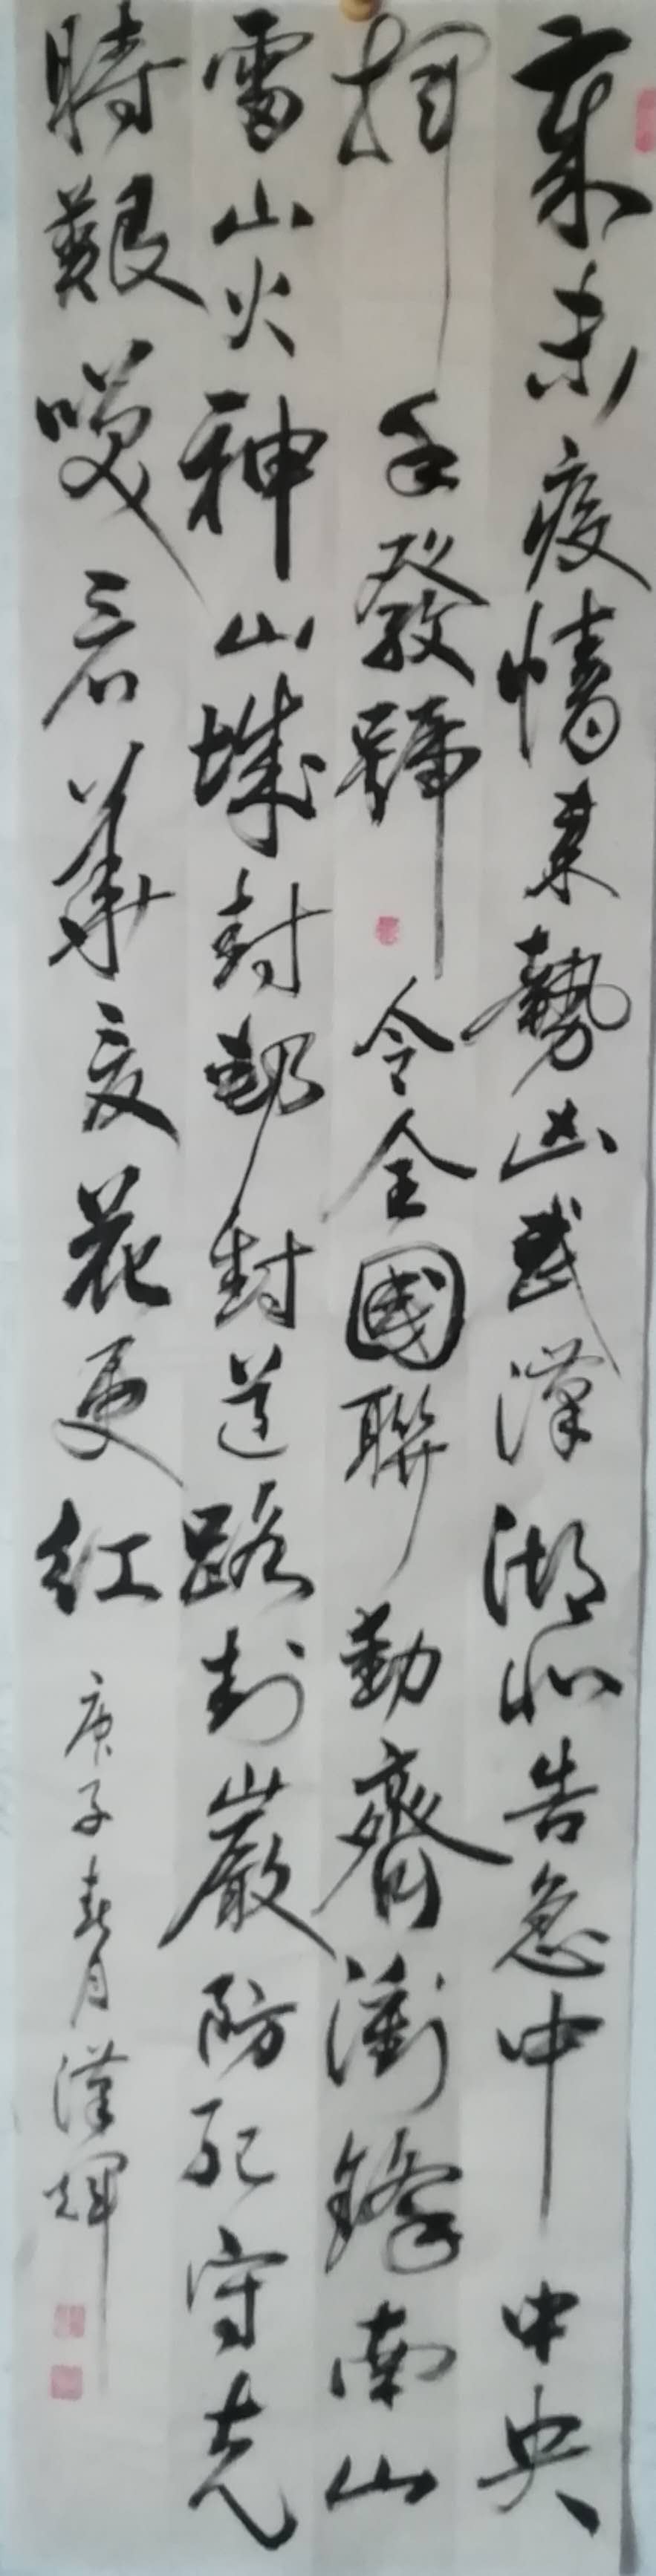 棄未疫情來勢凶武漢湖北告急中中央
揮手發號令全國聯動齊衝鋒南山
雷山火神山城封邨封道路封嚴防死守克
時艱嘆看華夏花更紅
庚子春月漢輝